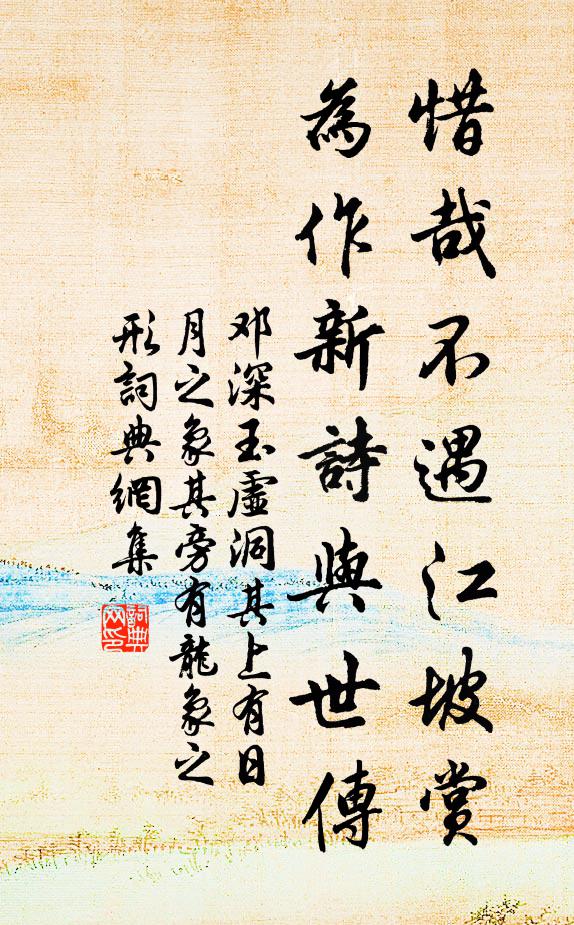 惜哉不遇江坡賞
為作新詩與世傳
邓深玉虛洞其上有日
月之象其旁有龍象之
形詞典網集
詞典
网印